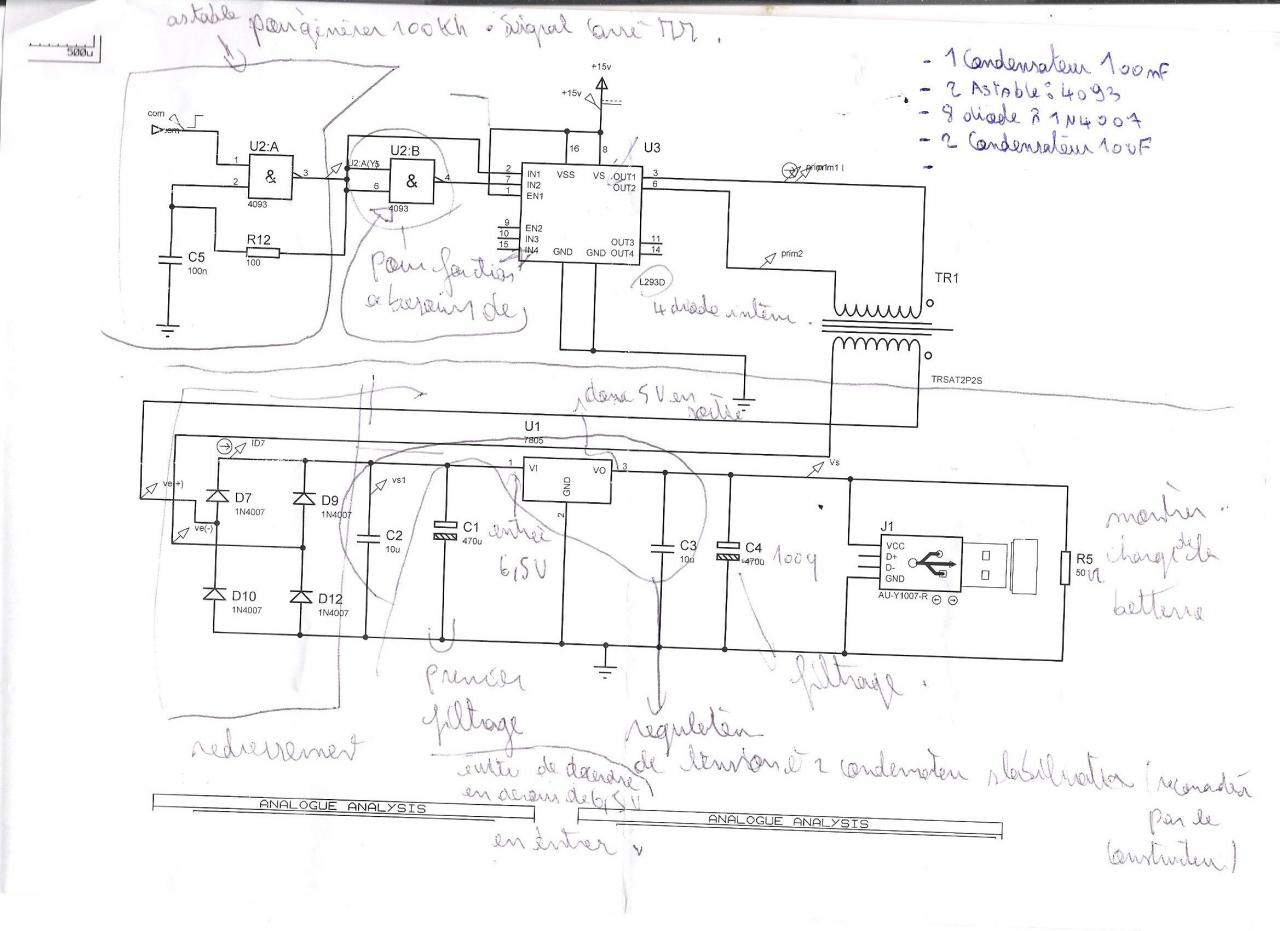 astable pour générer 100Kh . Signal carré
500u
- 1 Condensateur 100nF
- 2 Astable : 4093
- 8 diode à 1N4007
- 2 Condensateur 10uF
-
+15v
+15v
com
U2:A
1
2
3
&
4093
U2:A(Y)
U2:B
5
6
4
&
4093
U3
16
8
VSS
VS
2
7
1
IN1
IN2
EN1
9
10
15
EN2
IN3
IN4
GND
GND
OUT1
OUT2
3
6
OUT3
OUT4
11
14
L293D
prim1
prim2
R12
100
C5
100n
a besoin de
4 diode interne .
TR1
TRSAT2P2S
5V en
sortie
U1
7805
1
VI
VO
3
GND
2
ID7
ve(+)
ve(-)
vs1
Vs
D7
1N4007
D9
1N4007
D10
1N4007
D12
1N4007
C2
10u
C1
470u
entrée
6,5V
C3
10u
C4
470u
J1
VCC
D+
D-
GND
AU-Y1007-R
R5
50
montrer
charge de la
batterie
premier
filtrage
filtrage .
redressement
de tension
2
stabilisation
par le
constructeur)
6,5V
ANALOGUE ANALYSIS
ANALOGUE ANALYSIS